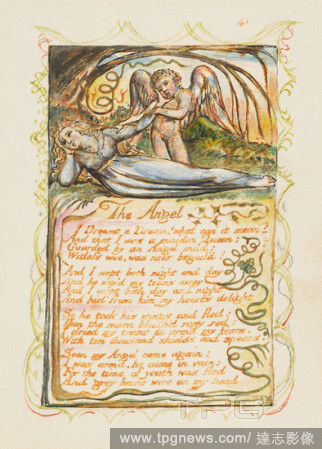 41
The Angel
I Dreamt a Dream! what can it mean?
And that I was a maiden Queen:
Guarded by an Angel mild:
Witless woe, was neer beguil'd!
And I wept both night and day
And he wip'd my tears away
And I wept both day and night
And hid from him my hearts delight
So he took his wings and fled:
Then the morn blush'd rosy red:
I dried my tears & armd my fears,
With ten thousand shields and spears.
Soon my Angel came again:
I was arm'd, he came in vain:
For the time of youth was fled
And grey hairs were on my head
TPG
www.tpgnews.com/ 達志影像